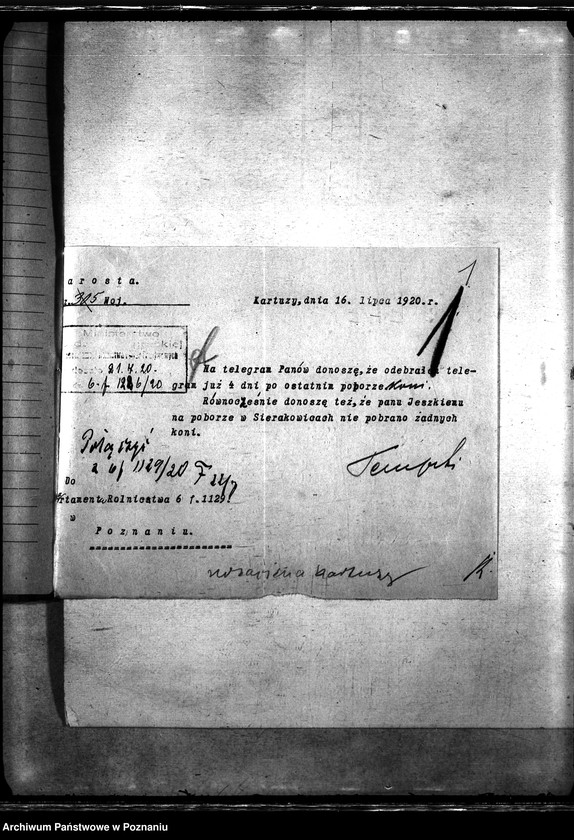 1
arosta.
305 Woj.
Kartuzy, dnia 16. lipca 1920.r.
Ministerstwo
21.4.20.
6.f 1226/20
Na telegram Panów donoszę, że odebrałem tele-
gram już 4 dni po ostatnim poborze koni.
Równocześnie donoszę też, że panu Jeszkiemu
na poborze w Sierakowicach nie pobrano żadnych
koni.
Połączyć
z 6f 1129/20
Do
tamentu Rolnictwa 6 f.1129.
w
Poznaniu.
Kartuzy
Archiwum Państwowe w Poznaniu